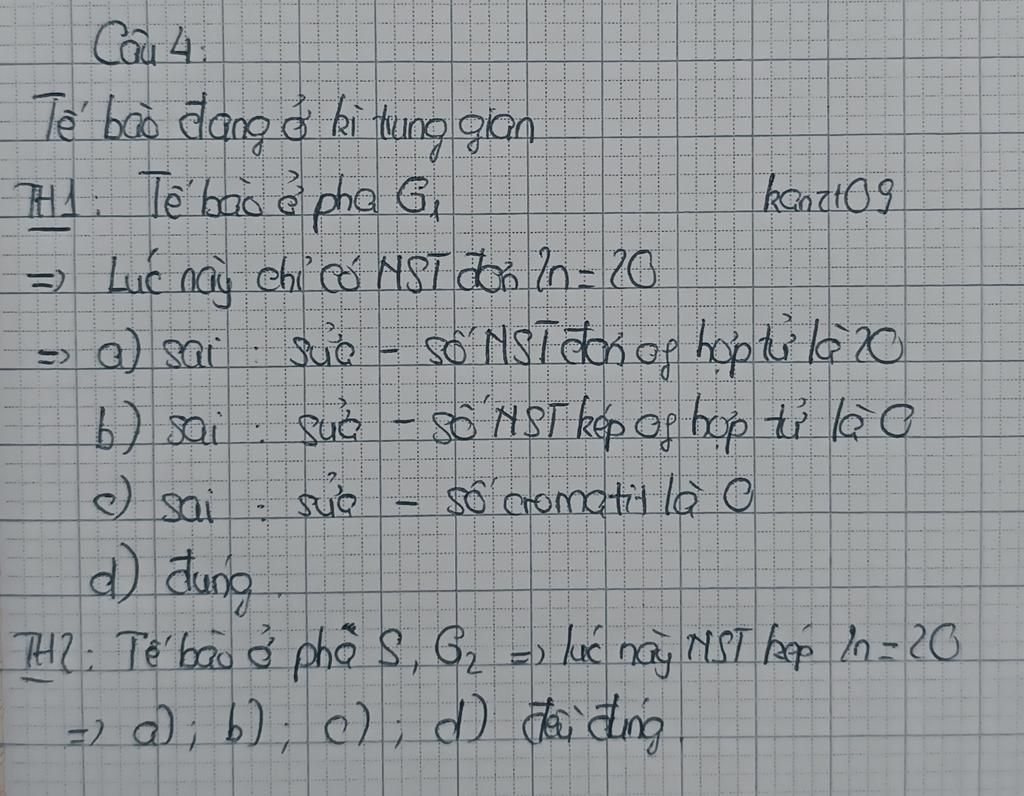 Câu 4:
Tế bào đang ở kì trung gian
TH1: Tế bào ở pha G₁ kanzt09
=> Lúc này chỉ có NST đơn 2n = 20
=> a) sai : sửa - số NST đơn of hợp tử là 20
b) sai : sửa - số NST kép of hợp tử là 0
c) sai : sửa - số cromatit là 0
d) đúng.
TH2: Tế bào ở pha S, G₂ => lúc này NST kép 2n = 20
=> a); b); c); d) đều đúng.